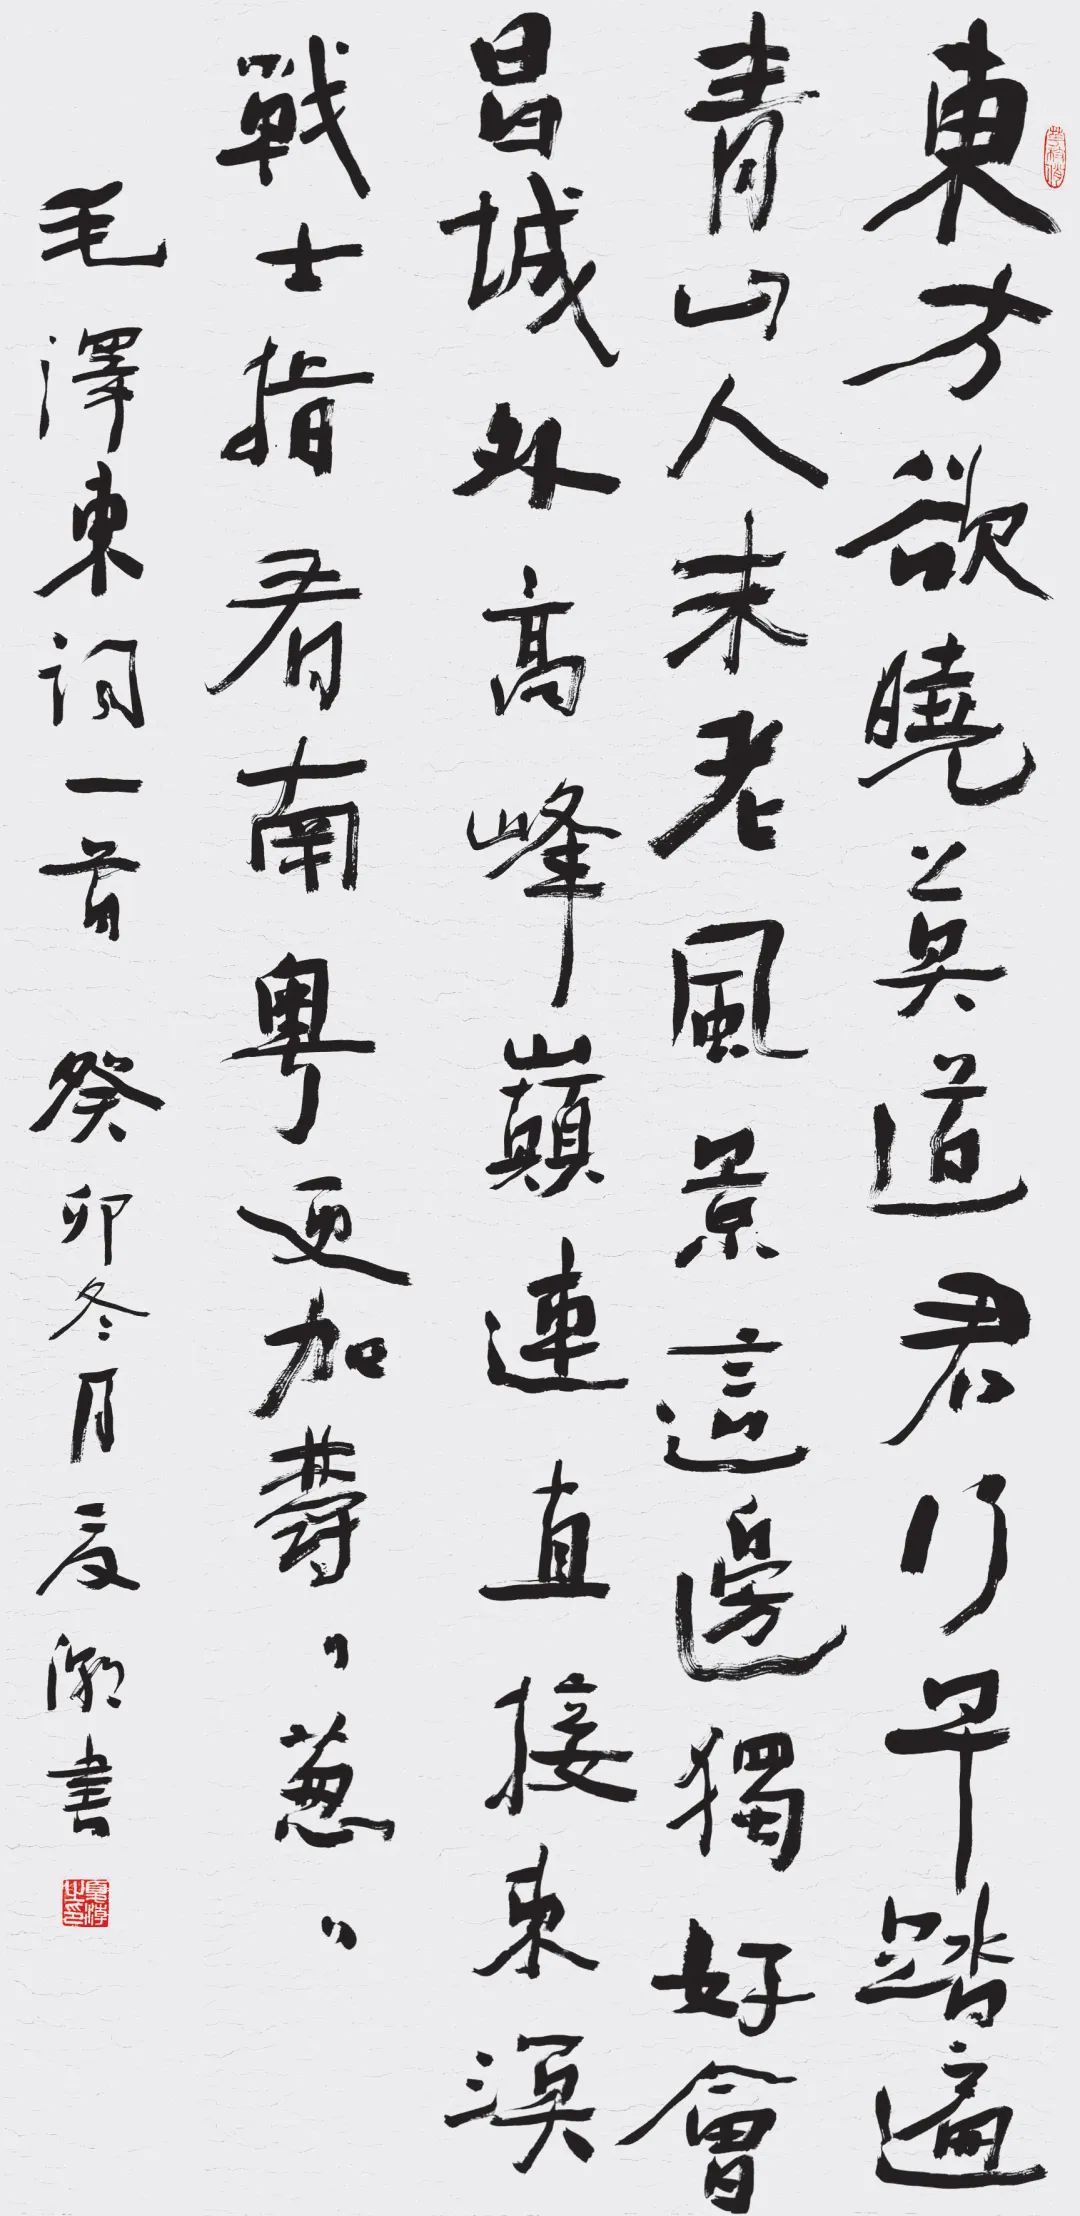 東方欲曉莫道君行早踏遍
青山人未老風景這邊獨好會
昌城外高峰巔連直接東溟
戰士指看南粵更加欝〻蔥〻
毛澤東詞一首 癸卯冬月夏潮書